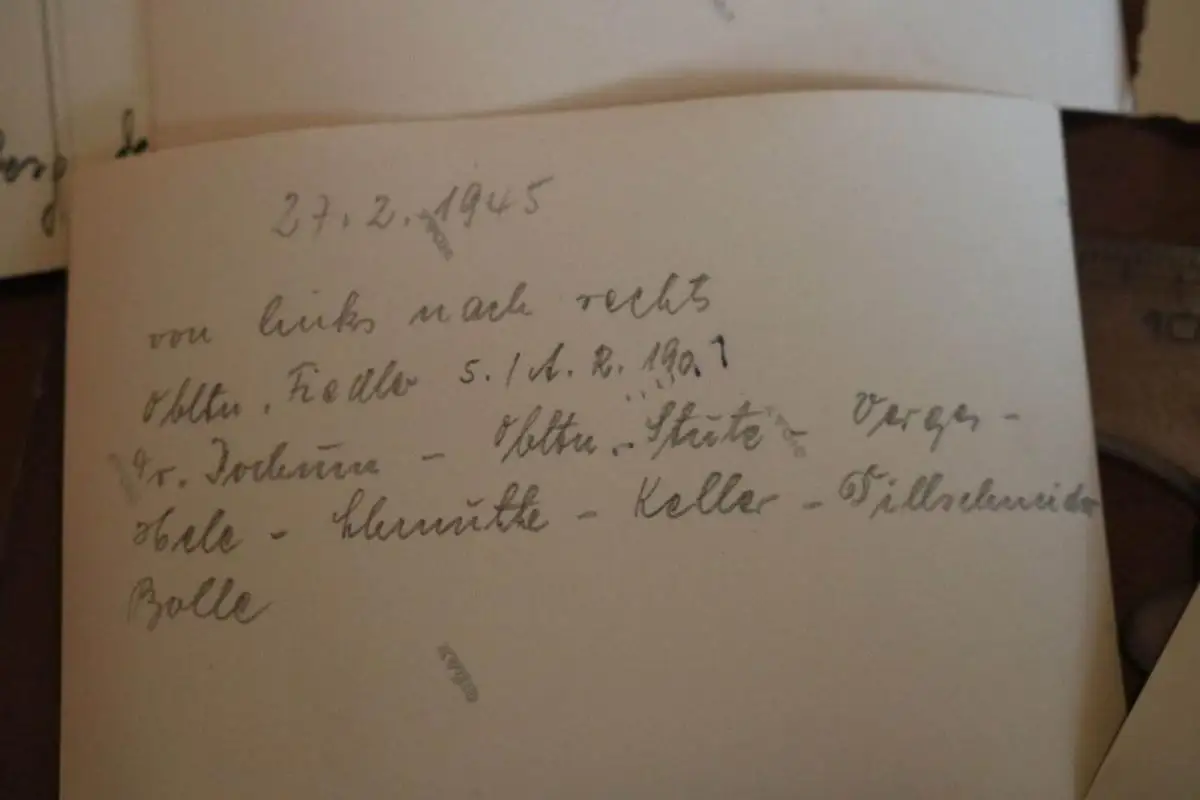 27.2.1945
von links nach rechts
Obltn. Fiedler 5./A.R. 190.
Dr. Jochum - Obltn. Stutz - Verges -
- Keller - Tillschneider
Bolle